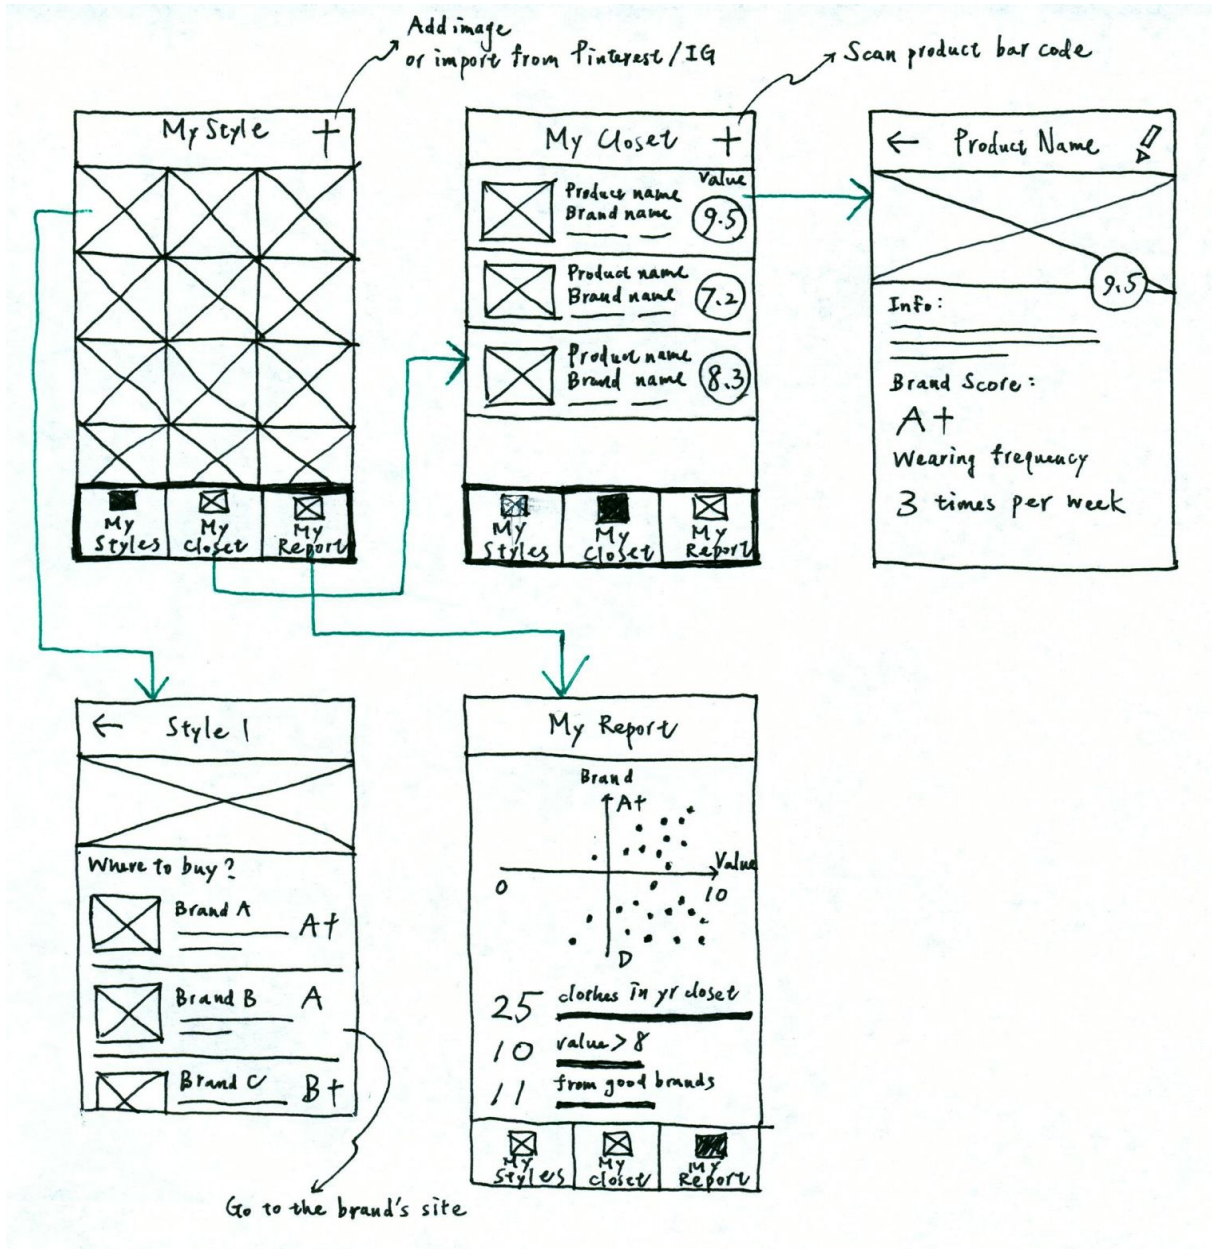 Add image
or import from Pinterest / IG
Scan product bar code
My Style +
My Styles
My Closet
My Report
My Closet +
Value
Product name
Brand name
9.5
Product name
Brand name
7.2
Product name
Brand name
8.3
My Styles
My Closet
My Report
← Product Name
9.5
Info:
Brand Score:
A+
Wearing frequency
3 times per week
← Style 1
Where to buy?
Brand A A+
Brand B A
Brand C B+
Go to the brand's site
My Report
Brand
A+
Value
0
10
D
25 clothes in yr closet
10 value > 8
11 from good brands
My Styles
My Closet
My Report